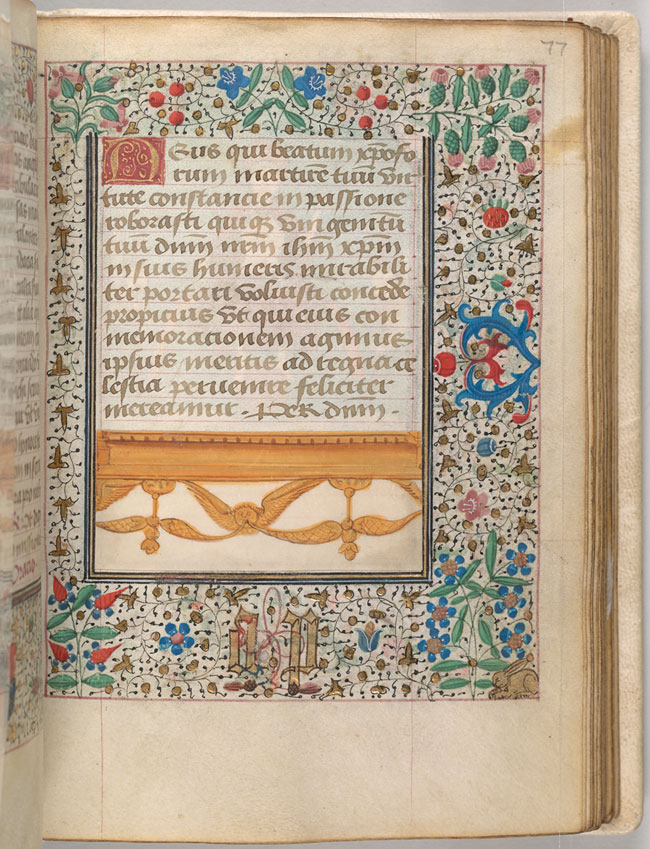 77
Deus qui beatum xp̄ofo
rum martirē tuū vir
tute constancie in passione
roborasti quiqꝫ vnigenitū
tuū dn̄m nr̄m ihm̄ xp̄m
in suis humeris mirabili
ter portari voluisti concede
propicius vt qui eius con
memoracionem agimus
ipsius meritis ad regna ce
lestia peruenire feliciter
mereamur . Per dn̄m .